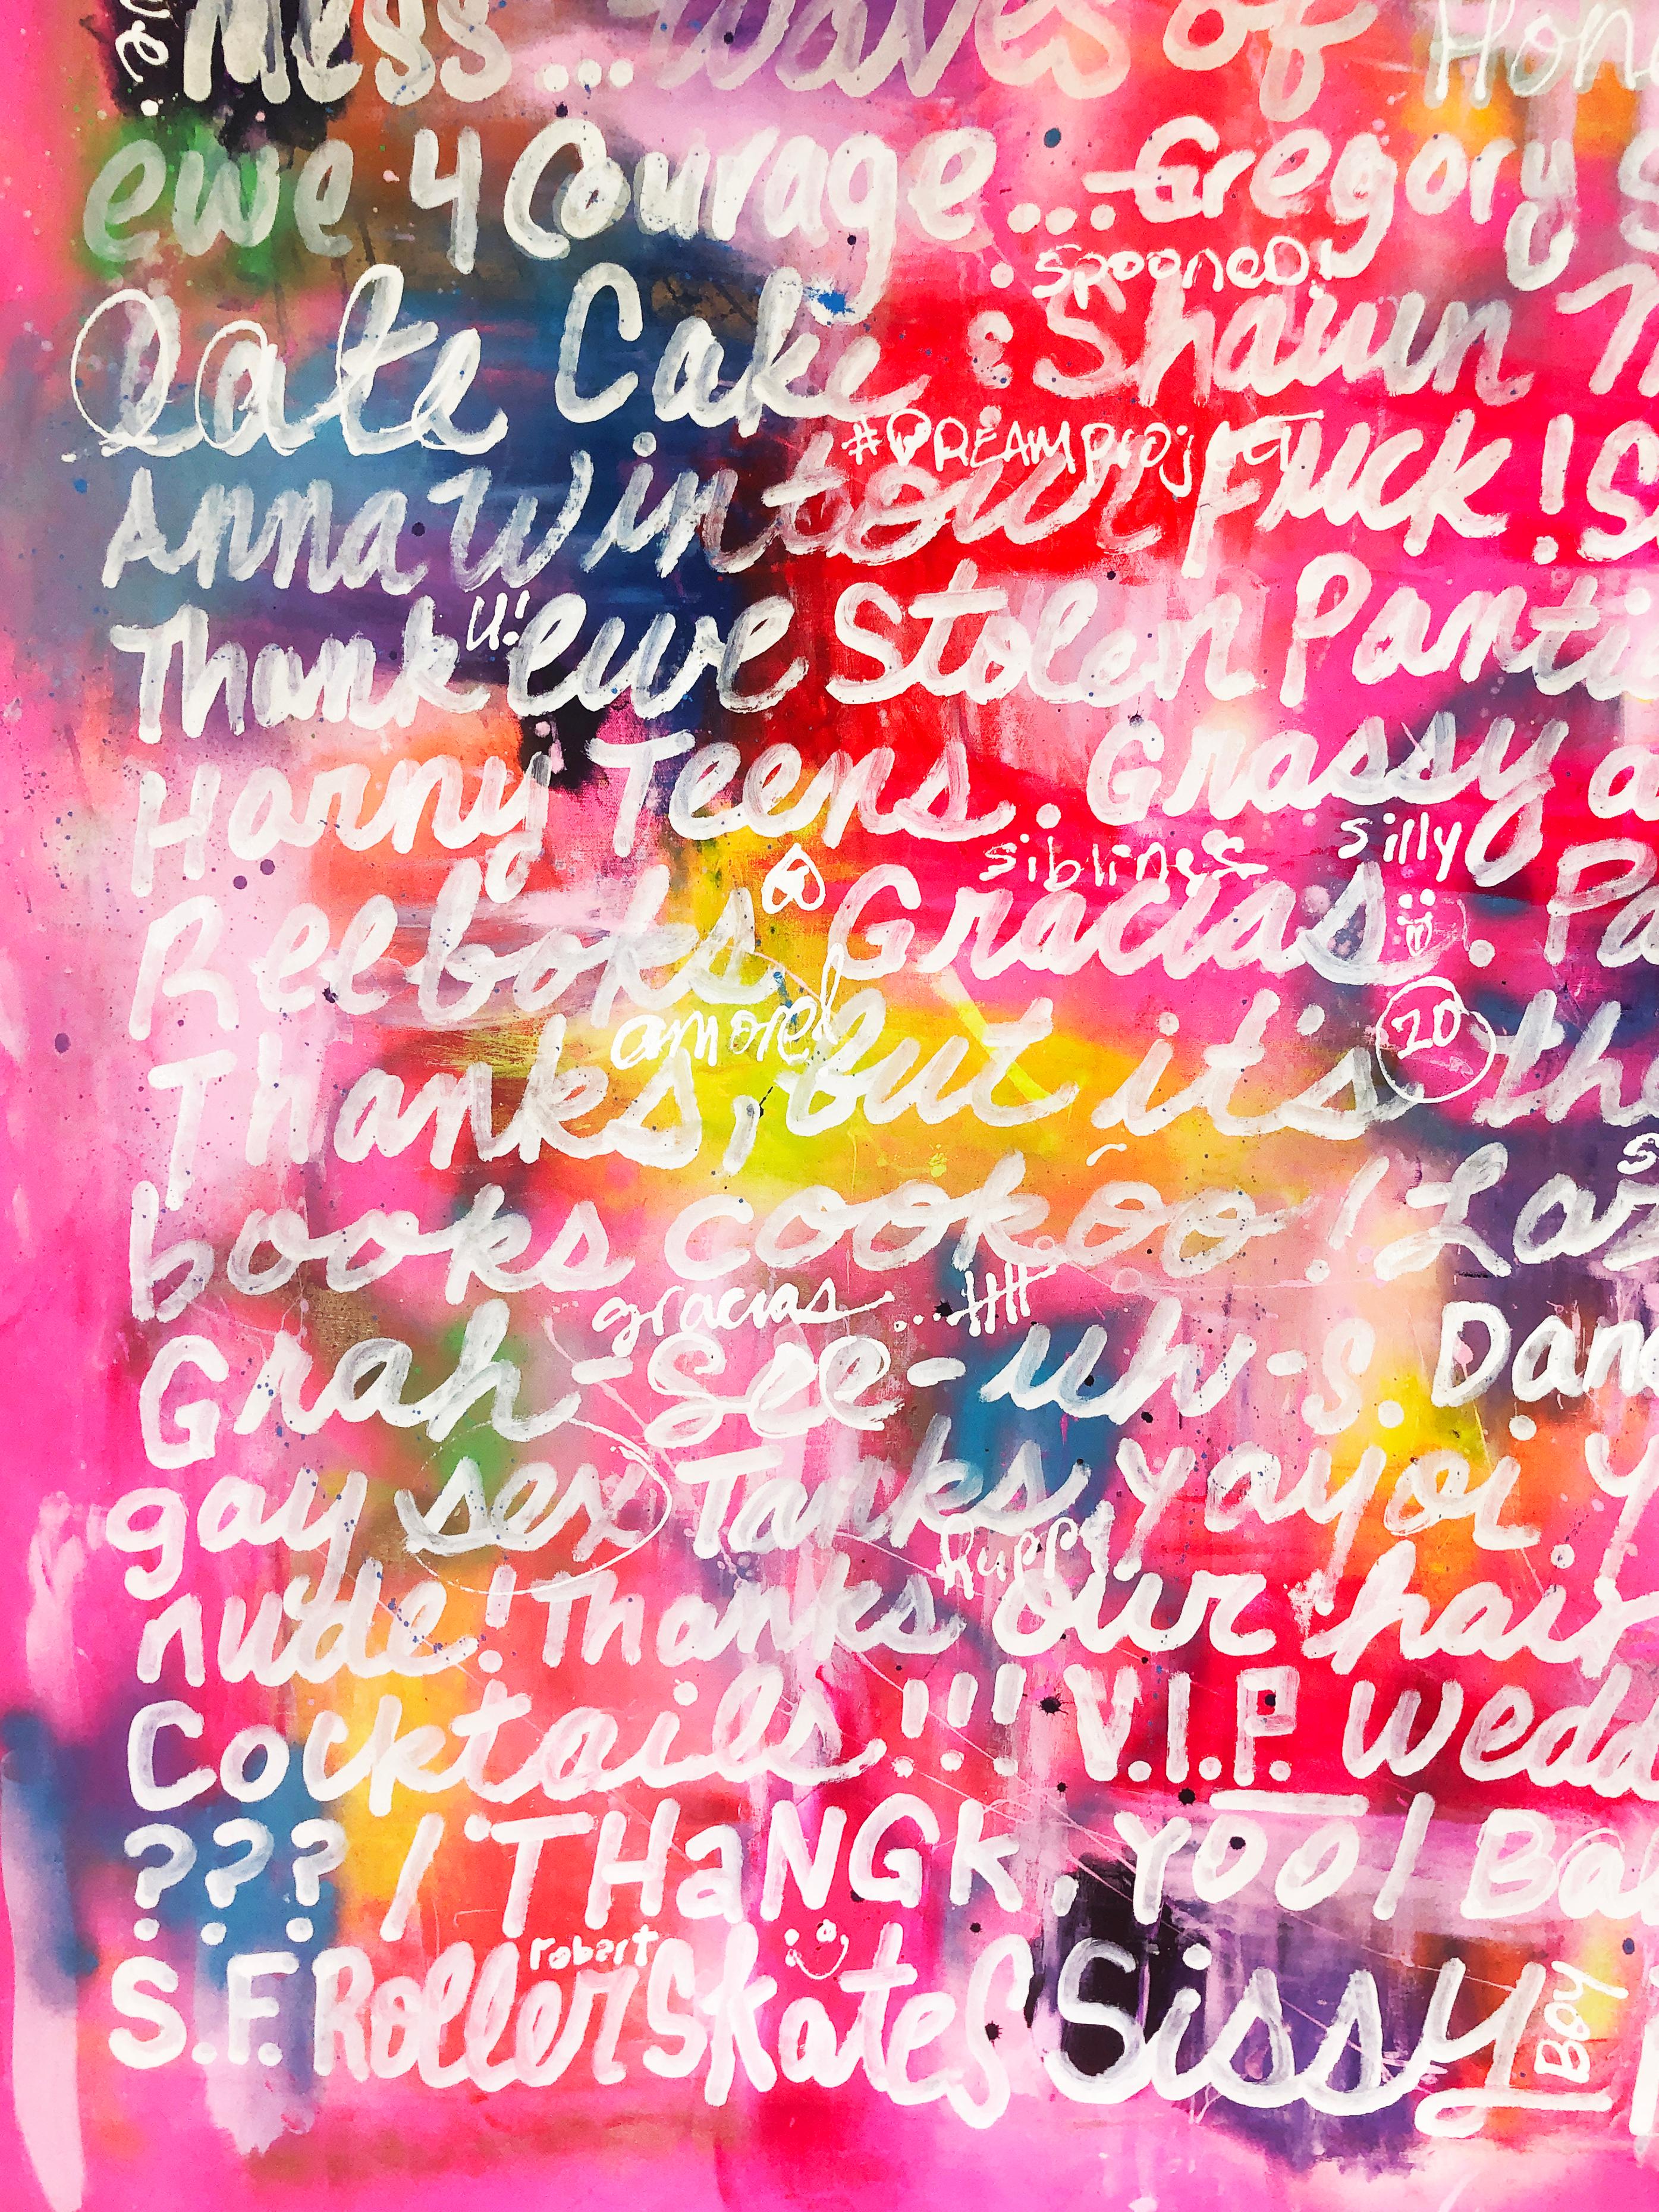 ve.
Mess... Waves of Hon
ewe 4 Courage... Gregory S
spooned!
late Cake : Shawn
#DREAMProject
Anna Wintour FUCK! S
U!
Thank ewe Stolen Panti
Horny Teens. Grassy a
siblings silly
Reeboks, Gracias. Pa
amored 20
Thanks, but it's the
books cookoo! Laz
gracias...
Grah-See-uh-s. Dan
gay sex Tanks, Yayoi. Y
huppy
nude! Thanks our hair
Cocktails!!! V.I.P. Wedd
??? / THaNGK, Yoo / Ba
robert
S.F. Roller Skates Sissy
Boy